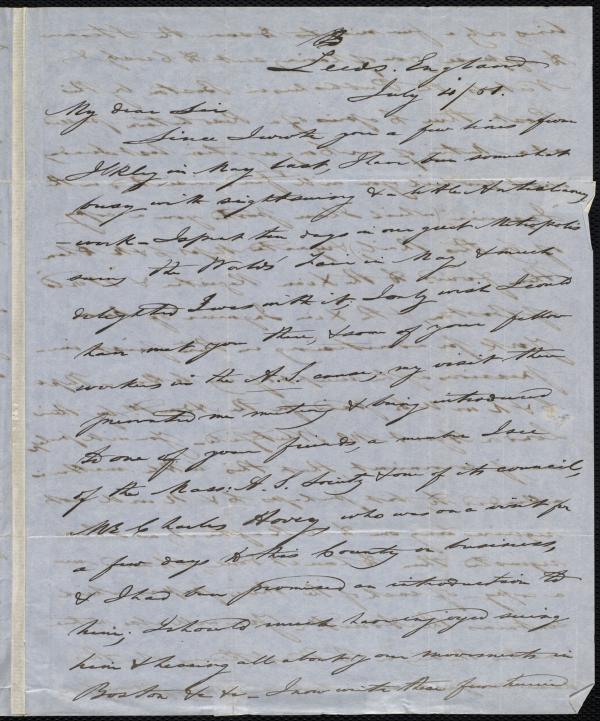 B
Leeds. England
July 4/51.
My dear Sir
Since I wrote you a few lines from
Ilkley in May last, I have been somewhat
busy with sightseeing & a little Antislavery
-work - I spent ten days in our great Metropolis
seeing the Worlds' Fair in May, & much
delighted I was with it. I only wish I could
have met you there, & some of your fellow
workers in the A.S. cause; my visit there
prevented me meeting & being introduced
to one of your friends, a member I see
of the Mass: A. S. Society & one of its council,
Mr Charles Hovey, who was on a visit for
a few days to this County on business,
& I had been promised an introduction to
him; I should much have enjoyed seeing
him & hearing all about your movements in
Boston &c &c - I now write these few lines